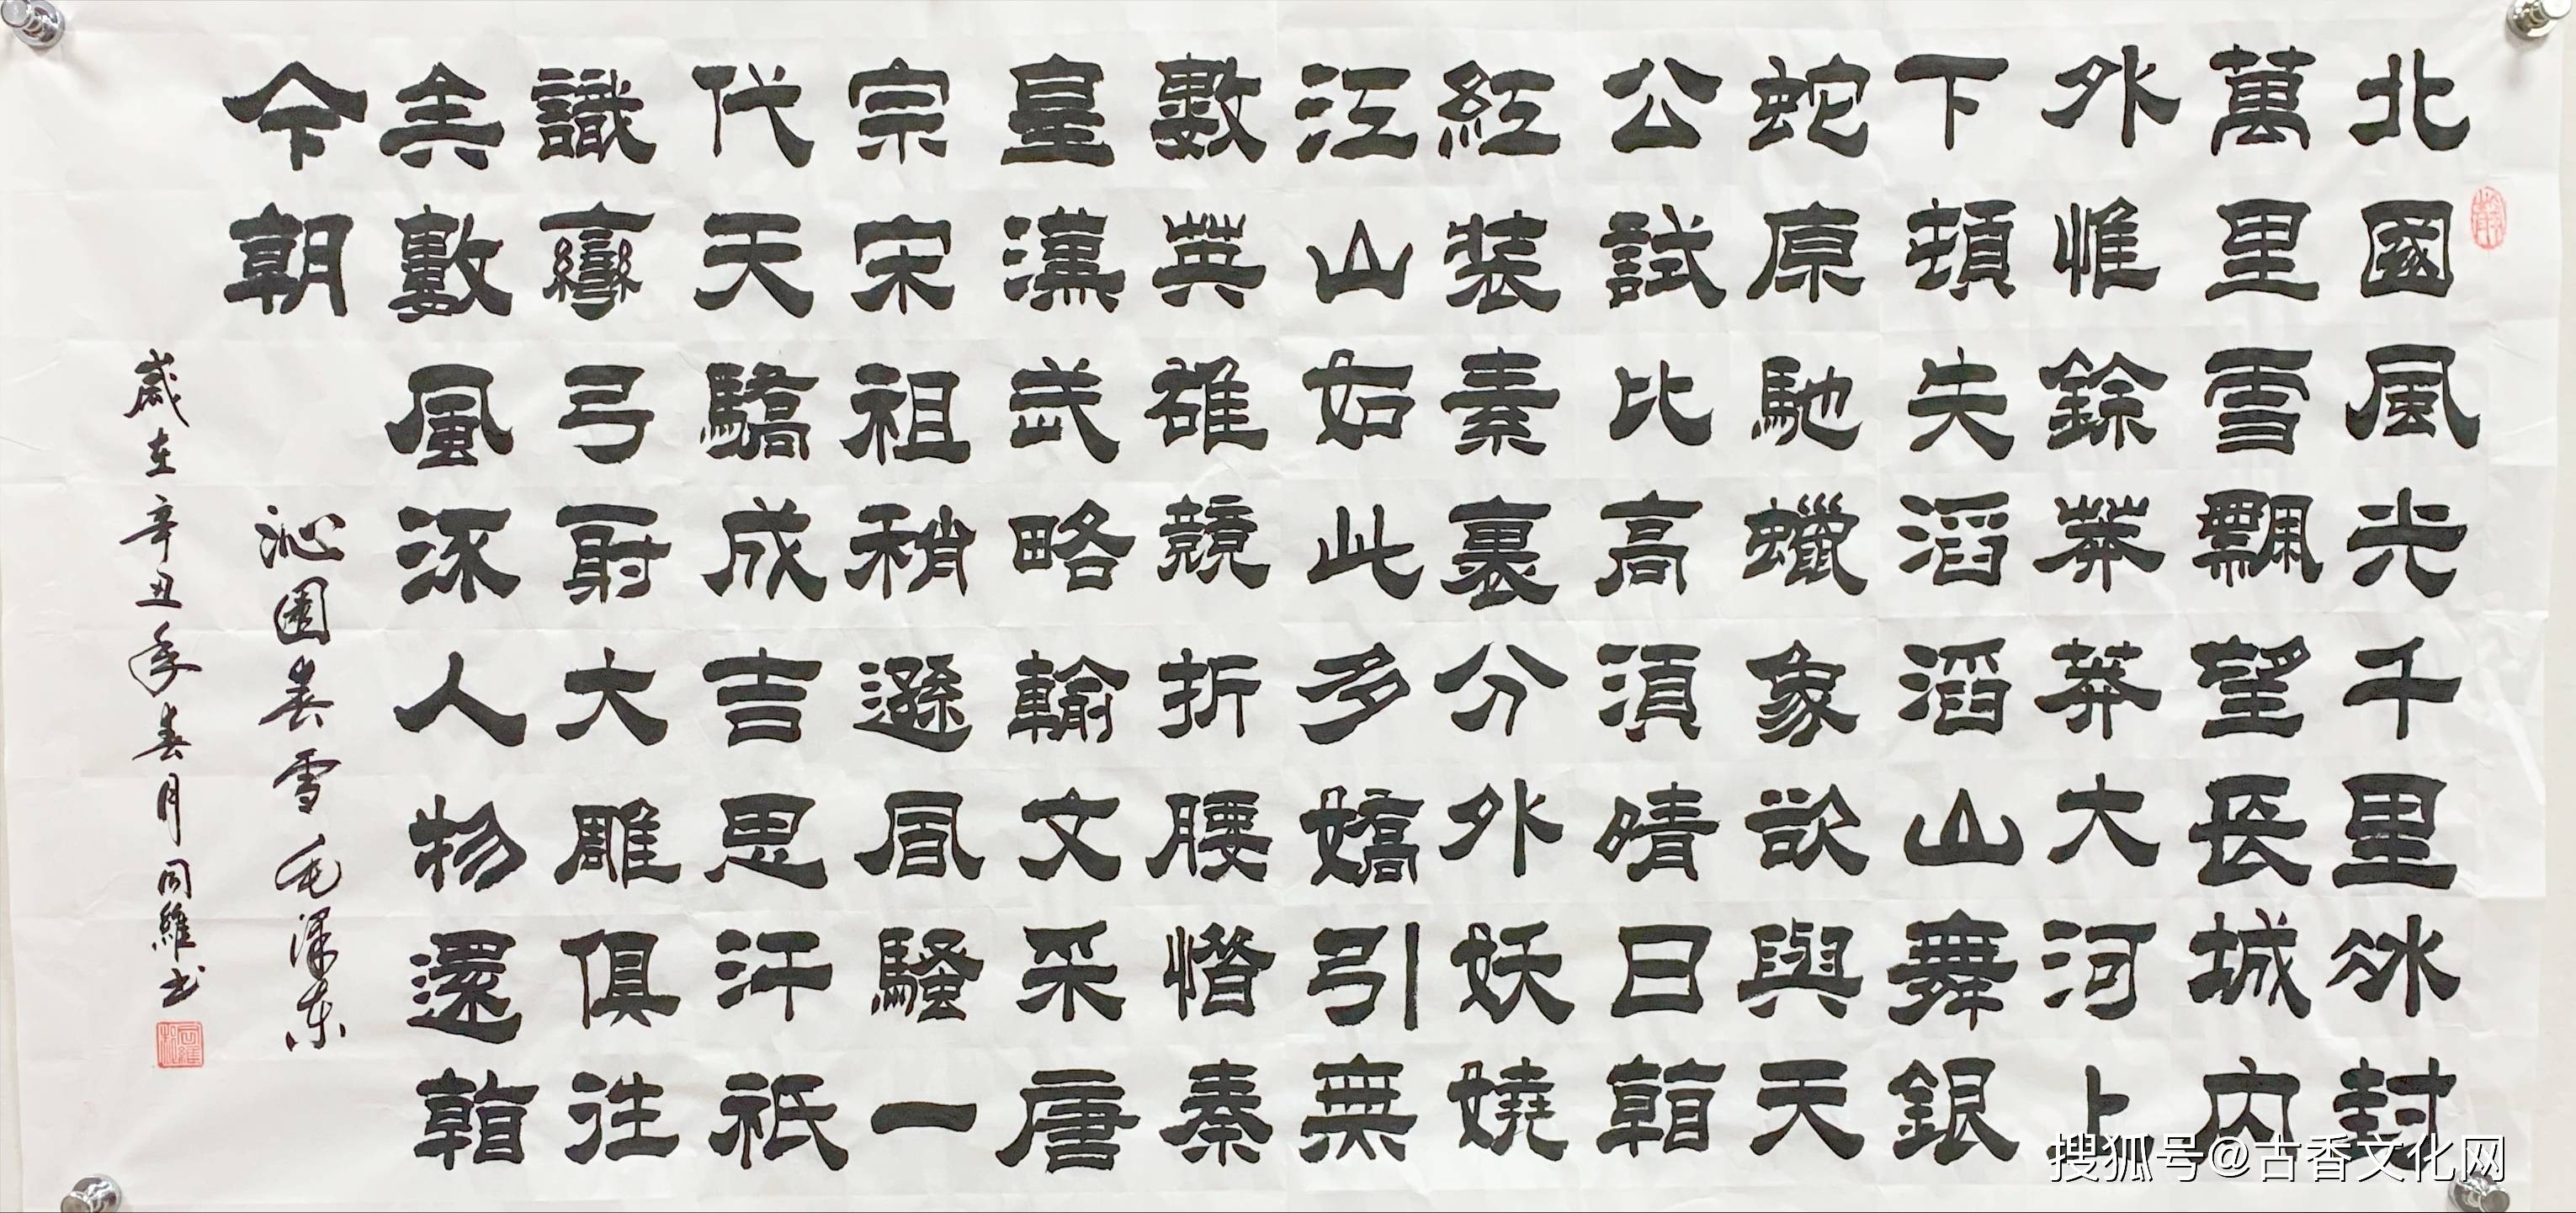 北國風光千里冰封
萬里雪飄望長城内
外惟餘莽莽大河上
下頓失滔滔山舞銀
蛇原馳蠟象欲與天
公試比高須晴日看
紅装素裹分外妖嬈
江山如此多嬌引無
數英雄競折腰惜秦
皇漢武略輸文采唐
宗宋祖稍遜風騷一
代天驕成吉思汗祇
識彎弓射大雕俱往
矣數風流人物還看
今朝
沁園春雪毛澤東
歲在辛丑年春月同維书
搜狐号@古香文化网